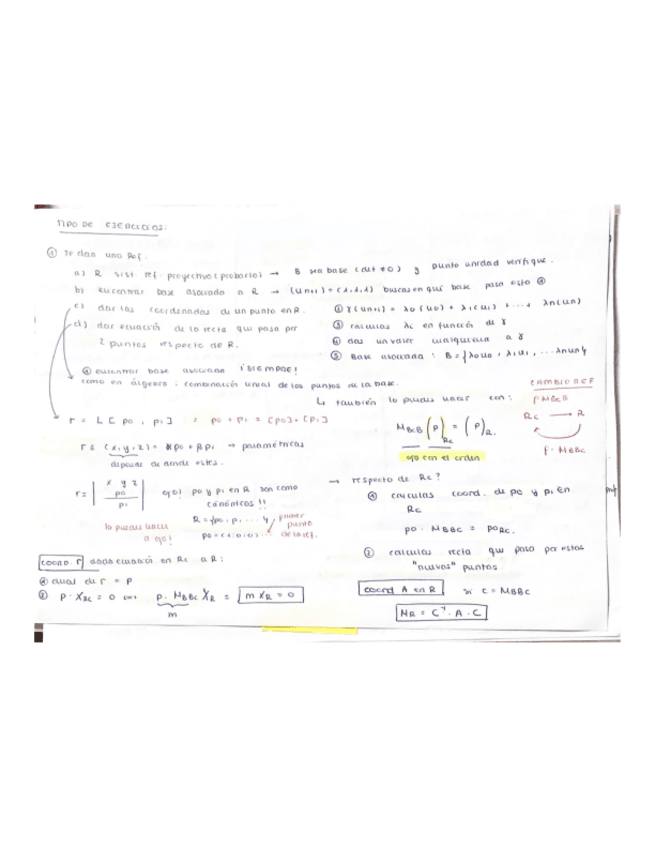 TIPO DE EJERCICIOS:
① Te dan una Ref:
a) R sist. ref. proyectivo (probarlo) → B sea base (det ≠ 0) y punto unidad verifique.
b) encontrar base asociada a R. → (un+1) = (1,1,1) buscas en qué base pasa esto
c) dar las coordenadas de un punto en R.
d) dar ecuación de la recta que pasa por
2 puntos respecto de R.
① γ(un+1) = λ0(u0) + λ1(u1) + ... + λn(un)
calculas λi en función de γ
das un valor cualquiera a γ
Base asociada: B = {λ0u0, λ1u1, ... λnun}
encontrar base asociada ¡SIEMPRE!
como en álgebra: combinación lineal de los puntos de la base.
↳ también lo puedes hacer con:
CAMBIO REF
P MBcB
Rc → R
P · MBBc
MBcB (P)Rc = (P)R.
ojo con el orden
r = L[p0, p1] : p0 + p1 = [p0] + [p1]
r ≡ (x, y, z) = αp0 + βp1 → paramétricas
depende de donde estés.
r = | x y z / p0 / p1 | ojo! p0 y p1 en R son como
canónicos!!
R = {p0, p1 ... }
p0 = (1:0:0) ...
primer
punto
de la ref.
lo puedes hacer
a ojo!
→ respecto de Rc?
calculas coord. de p0 y p1 en
Rc
p0 · MBBc = p0Rc.
② calculas recta que pasa por estos
"nuevos" puntos
coord. r dada ecuación en Rc a R:
dual de r = P
② P · XRc = 0 P · MBBc XR = m XR = 0
m
coord A en R si C = MBBc
MR = C⁻¹ · A · C